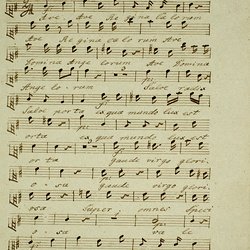 Ave Ave Regina Caelorum
Ave Regina Caelorum Ave
Domina Angelorum Ave Domina
Angelorum Salve radix
Salve porta ex qua mundo lux est
orta ex qua mundo lux est
orta gaude virgo glori
osa gaude virgo glori
osa Super omnes speci
osa vale